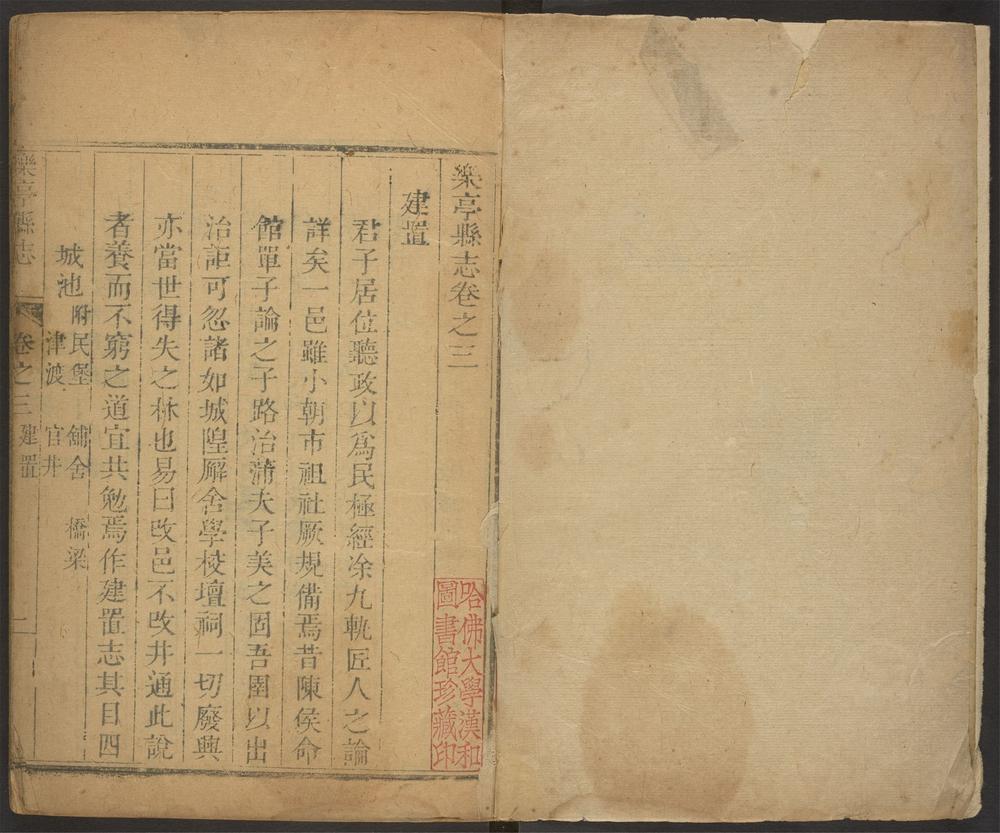 樂亭縣志卷之三
建置
君子居位聽政以爲民極經涂九軌匠人之論
詳矣一邑雖小朝市祖社厥規備焉昔陳侯命
館單子論之子路治蒲夫子美之固吾圉以出
治詎可忽諸如城隍廨舍學校壇祠一切廢興
亦當世得失之林也易曰改邑不改井通此說
者養而不窮之道宜共勉焉作建置志其目四
城池 附民堡 舖舍 橋梁
津渡 官井
樂亭縣志 卷之三 建置 一
哈佛大學漢和
圖書館珍藏印